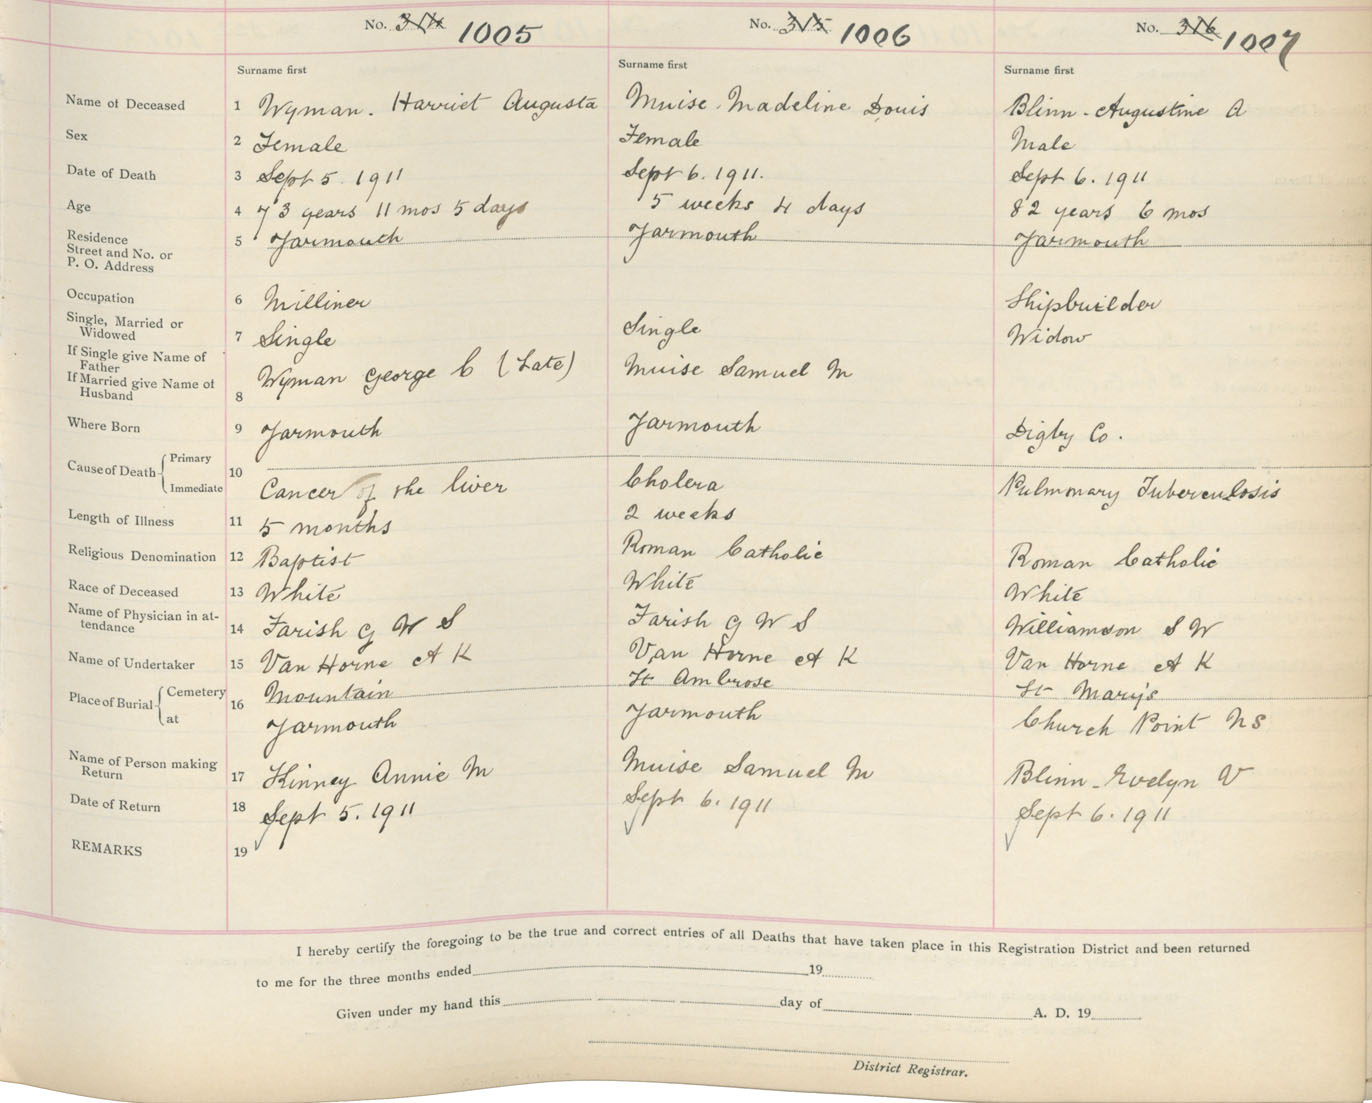 No. 314 1005 No. 315 1006 No. 316 1007
Surname first Surname first Surname first
Name of Deceased 1 Wyman. Harriet Augusta Muise. Madeline Douis Blinn - Augustine A
Sex 2 Female Female Male
Date of Death 3 Sept 5. 1911 Sept 6. 1911. Sept 6. 1911
Age 4 73 years 11 mos 5 days 5 weeks 4 days 82 years 6 mos
Residence
Street and No. or 5 Yarmouth Yarmouth Yarmouth
P. O. Address
Occupation 6 Milliner Shipbuilder
Single, Married or
Widowed 7 Single Single Widow
If Single give Name of
Father
If Married give Name of
Husband 8 Wyman George C (Late) Muise Samuel M
Where Born 9 Yarmouth Yarmouth Digby Co.
Cause of Death Primary 10
Immediate Cancer of the liver Cholera Pulmonary Tuberculosis
Length of Illness 11 5 months 2 weeks
Religious Denomination 12 Baptist Roman Catholic Roman Catholic
Race of Deceased 13 White White White
Name of Physician in at-
tendance 14 Farish G W S Farish G W S Williamson S W
Name of Undertaker 15 Van Horne A K Van Horne A K Van Horne A K
Place of Burial Cemetery 16 Mountain St Ambrose St Mary's
at Yarmouth Yarmouth Church Point NS
Name of Person making
Return 17 Kinney Annie M Muise Samuel M Blinn - Evelyn V
Date of Return 18 Sept 5. 1911 Sept 6. 1911 Sept 6. 1911
REMARKS 19
I hereby certify the foregoing to be the true and correct entries of all Deaths that have taken place in this Registration District and been returned
to me for the three months ended 19
Given under my hand this day of A. D. 19
District Registrar.